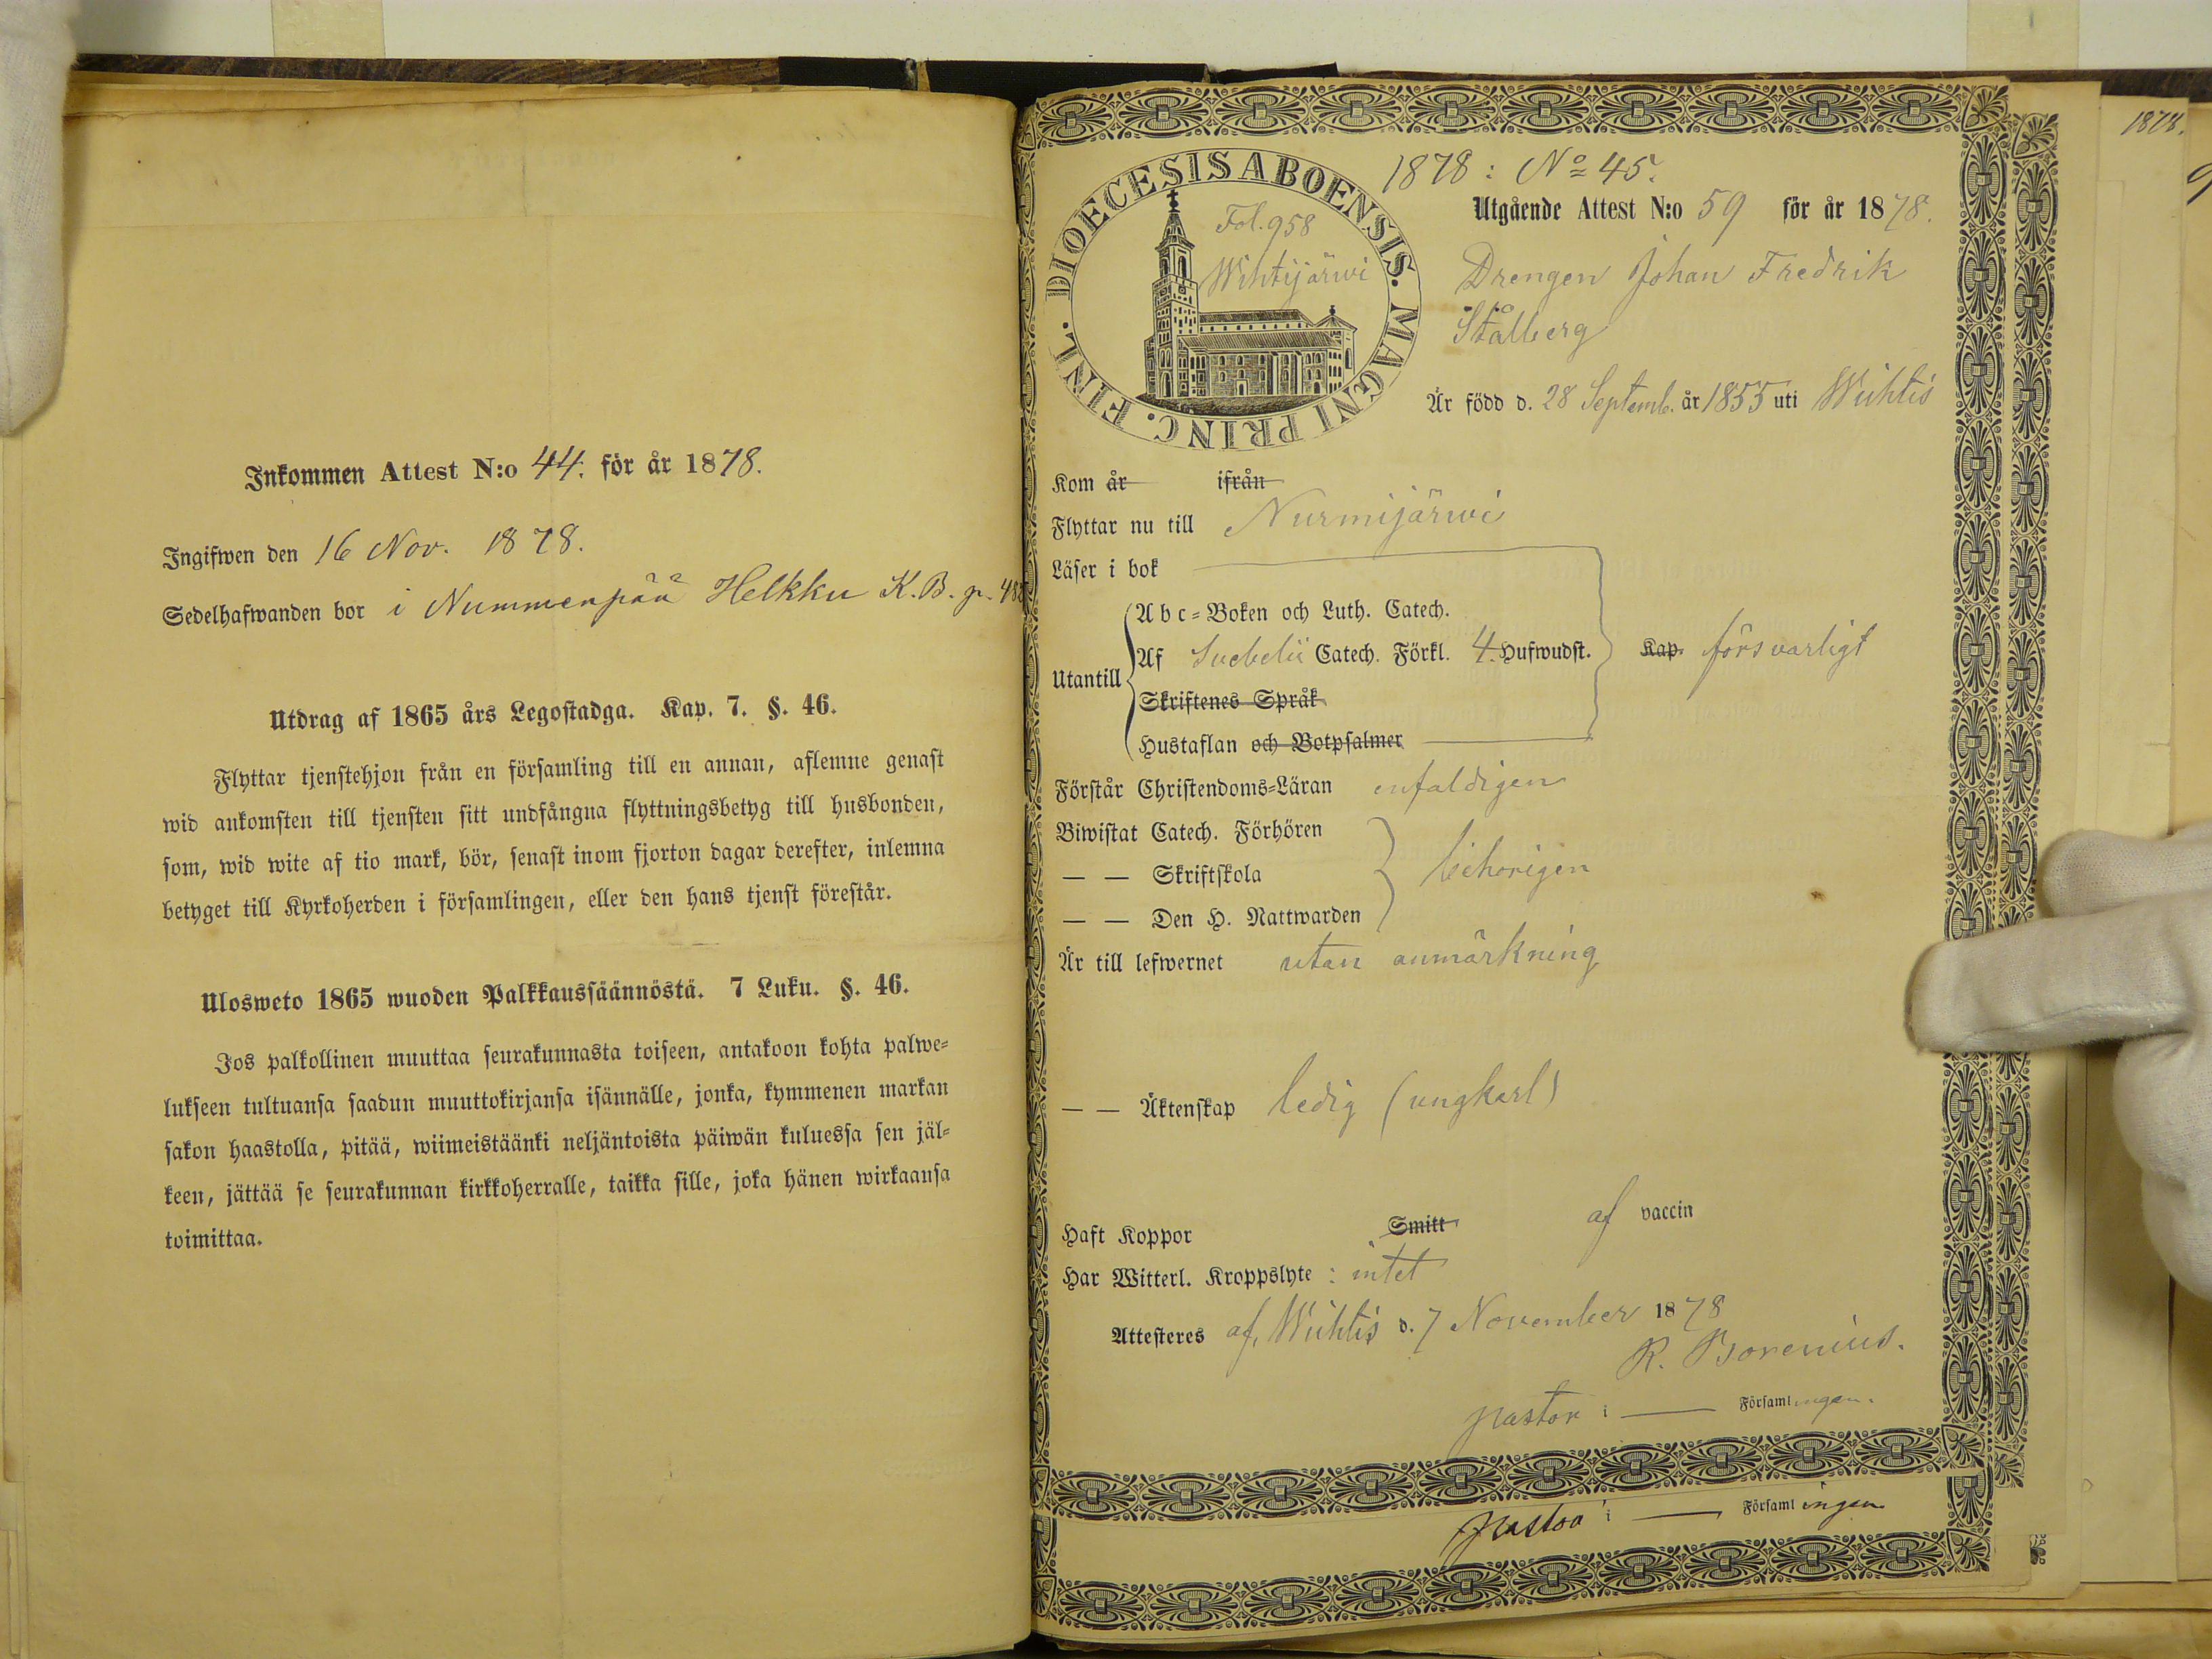 Inkommen Attest N:o 44. för år 1878.
Ingifwen den 16 Nov. 1878.
Sedelhafwanden bor i Nummenpää Helkku K.B. p. 48
Utdrag af 1865 års Legostadga. Kap. 7. §. 46.
Flyttar tjenstehjon från en församling till en annan, aflemne genast
wid ankomsten till tjensten sitt undfångna flyttningsbetyg till husbonden,
som, wid wite af tio mark, bör, senast inom fjorton dagar derefter, inlemna
betyget till Kyrkoherden i församlingen, eller den hans tjenst förestår.
Ulosweto 1865 wuoden Palkkaussäännöstä. 7 Luku. §. 46.
Jos palkollinen muuttaa seurakunnasta toiseen, antakoon kohta palwe=
lukseen tultuansa saadun muuttokirjansa isännälle, jonka, kymmenen markan
sakon haastolla, pitää, wiimeistäänki neljäntoista päiwän kuluessa sen jäl=
keen, jättää se seurakunnan kirkkoherralle, taikka sille, joka hänen wirkaansa
toimittaa.
DIOECESIS ABOENSIS. MAGNI PRINC. FINL.
Fol. 958
Wihtijärwi
1878 : No 45.
Utgående Attest N:o 59 för år 1878.
Drengen Johan Fredrik
Stålberg
Är född d. 28 Septemb. år 1855 uti Wichtis
Kom år ifrån
Flyttar nu till Nurmijärwi
Läser i bok
Utantill
Abc=Boken och Luth. Catech.
Af Svebelii Catech. Förkl. 4. Hufwudst. Kap. försvarligt
Skriftenes Språk
Hustaflan och Botpsalmer
Förstår Christendoms=Läran enfaldigen
Biwistat Catech. Förhören
— — Skriftskola behörigen
— — Den H. Nattwarden
Är till lefwernet utan anmärkning
— — Äktenskap ledig (ungkarl)
Haft Koppor Smitt af vaccin
Har Witterl. Kroppslyte : intet
Attesteres af Wichtis d. 7 November 1878
R. Borenius.
pastor i — Församlingen.
pastor i — Församlingen
1878.